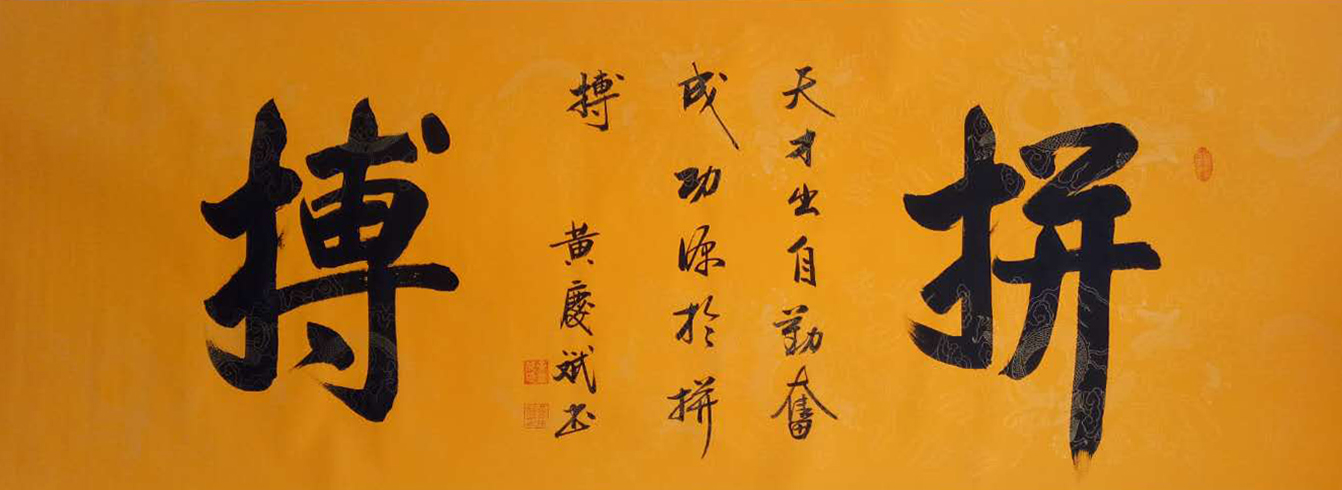 拼
天才出自勤奮
成功源於拼
搏
黃慶斌書
搏